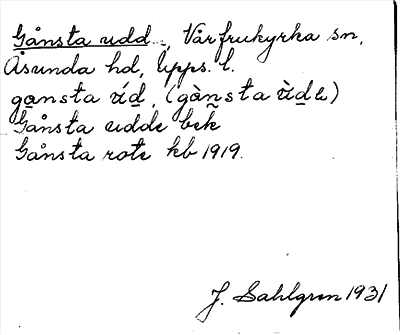 Gånsta udd, Vårfrukyrka sn,
Åsunda hd, Upps. l.
gansta ú́d, (gànsta ù̀dɛ)
Gånsta udde bek
Gånsta rote kb 1919.
J. Sahlgren 1931